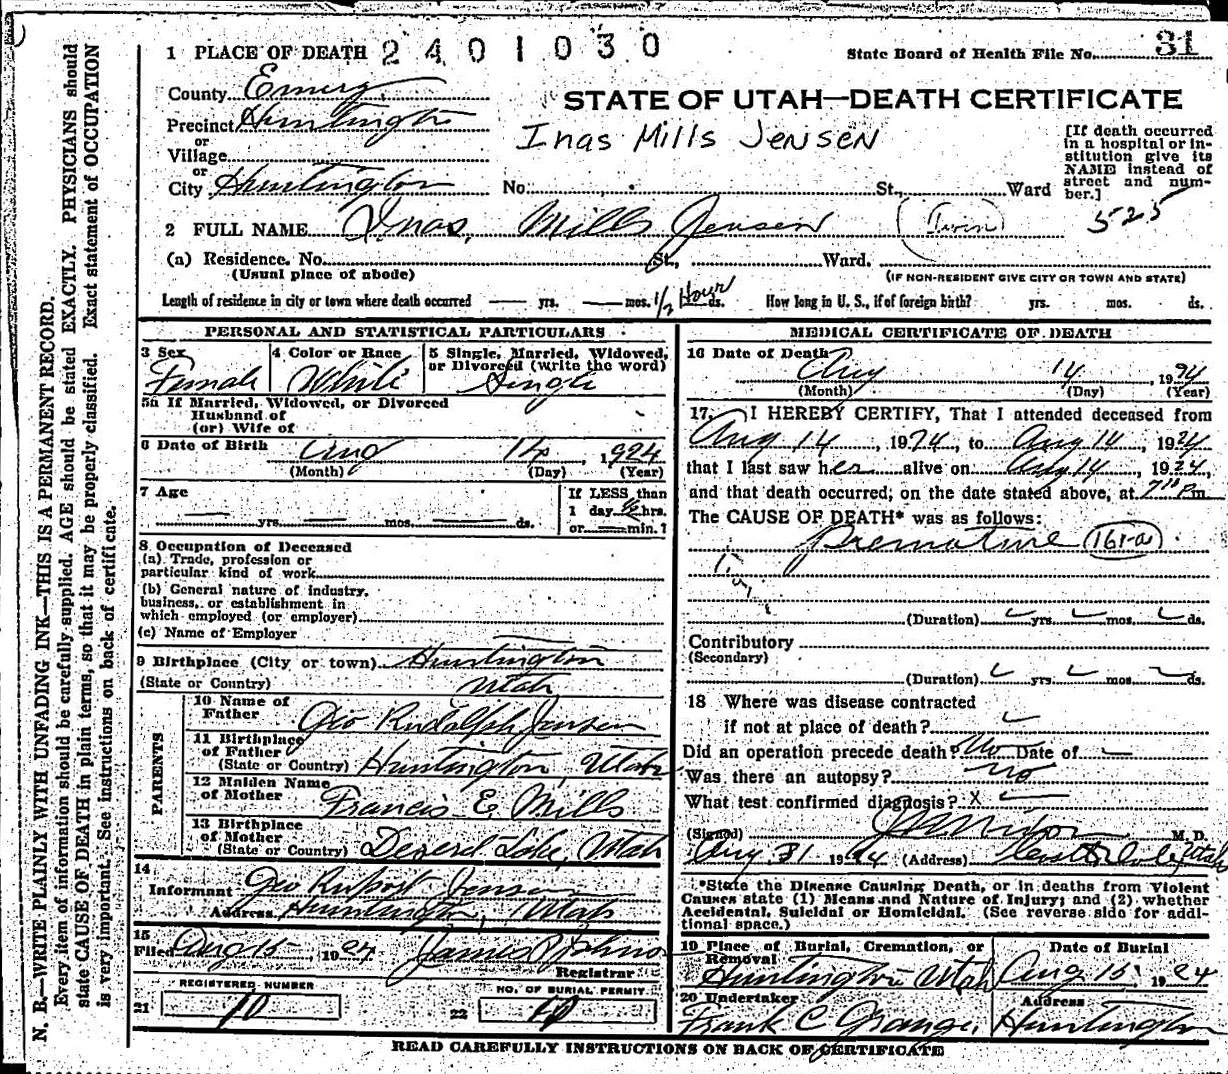 1 PLACE OF DEATH 2401030
State Board of Health File No. 31
County Emery
STATE OF UTAH—DEATH CERTIFICATE
Precinct Huntington
Inas Mills Jensen
or
Village
or
City Huntington No. St., Ward
[If death occurred
in a hospital or in-
stitution give its
NAME instead of
street and num-
ber.]
525
2 FULL NAME Inas Mills Jensen (Twin)
(a) Residence. No. St., Ward.
(Usual place of abode)
(IF NON-RESIDENT GIVE CITY OR TOWN AND STATE)
Length of residence in city or town where death occurred — yrs. — mos. 1/2 Hour ds. How long in U. S., if of foreign birth? yrs. mos. ds.
PERSONAL AND STATISTICAL PARTICULARS
3 Sex
Female
4 Color or Race
White
5 Single, Married, Widowed,
or Divorced (write the word)
Single
5a If Married, Widowed, or Divorced
Husband of
(or) Wife of
6 Date of Birth Aug 14, 1924
(Month) (Day) (Year)
7 Age
— yrs. — mos. — ds.
If LESS than
1 day 1/2 hrs.
or — min.?
8 Occupation of Deceased
(a) Trade, profession or
particular kind of work
(b) General nature of industry,
business, or establishment in
which employed (or employer)
(c) Name of Employer
9 Birthplace (City or town) Huntington
(State or Country) Utah
PARENTS
10 Name of
Father Geo Rudolph Jensen
11 Birthplace
of Father
(State or Country) Huntington, Utah
12 Maiden Name
of Mother Francis E Mills
13 Birthplace
of Mother
(State or Country) Deserd Lake, Utah
14
Informant Geo Jensen
Address Huntington, Utah
15
Filed Aug 15 1924 James P Johnson
Registrar
REGISTERED NUMBER
21 10
NO. OF BURIAL PERMIT
22 10
MEDICAL CERTIFICATE OF DEATH
16 Date of Death
Aug 14, 1924
(Month) (Day) (Year)
17 I HEREBY CERTIFY, That I attended deceased from
Aug 14, 1924, to Aug 14, 1924
that I last saw her alive on Aug 14, 1924,
and that death occurred, on the date stated above, at 7 Pm
The CAUSE OF DEATH* was as follows:
Premature (161-a)
(Duration) yrs. mos. ds.
Contributory
(Secondary)
(Duration) yrs. mos. ds.
18 Where was disease contracted
if not at place of death?
Did an operation precede death? No Date of —
Was there an autopsy? No
What test confirmed diagnosis? X
(Signed) M. D.
Aug 31 1924 (Address) Castle Dale, Utah
*State the Disease Causing Death, or in deaths from Violent
Causes state (1) Means and Nature of Injury; and (2) whether
Accidental, Suicidal or Homicidal. (See reverse side for addi-
tional space.)
19 Place of Burial, Cremation, or
Removal
Huntington Utah
Date of Burial
Aug 15, 1924
20 Undertaker
Frank C Grange.
Address
Huntington
READ CAREFULLY INSTRUCTIONS ON BACK OF CERTIFICATE
N. B.—WRITE PLAINLY WITH UNFADING INK—THIS IS A PERMANENT RECORD.
Every item of information should be carefully supplied. AGE should be stated EXACTLY. PHYSICIANS should
state CAUSE OF DEATH in plain terms, so that it may be properly classified. Exact statement of OCCUPATION
is very important. See instructions on back of certificate.